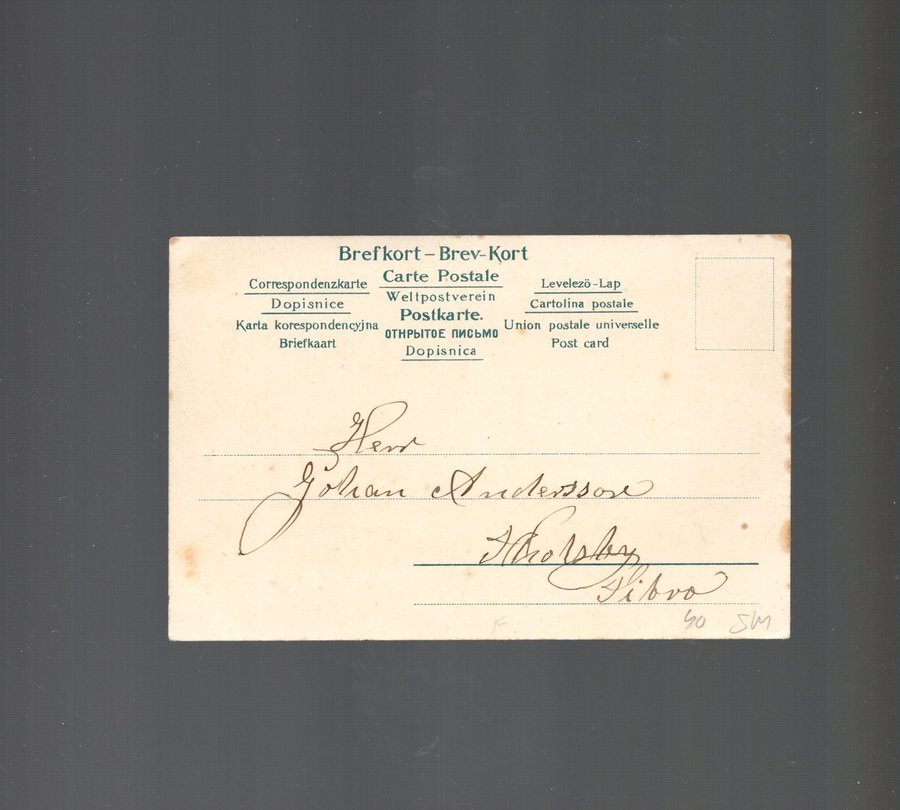 Brefkort – Brev-Kort
Carte Postale
Correspondenzkarte
Weltpostverein
Levelezö-Lap
Dopisnice
Postkarte.
Cartolina postale
Karta korespondencyjna
ОТНРЫТОЕ ПИСЬМО
Union postale universelle
Briefkaart
Dopisnica
Post card
Herr
Johan Andersson
Sibbo
50 SM